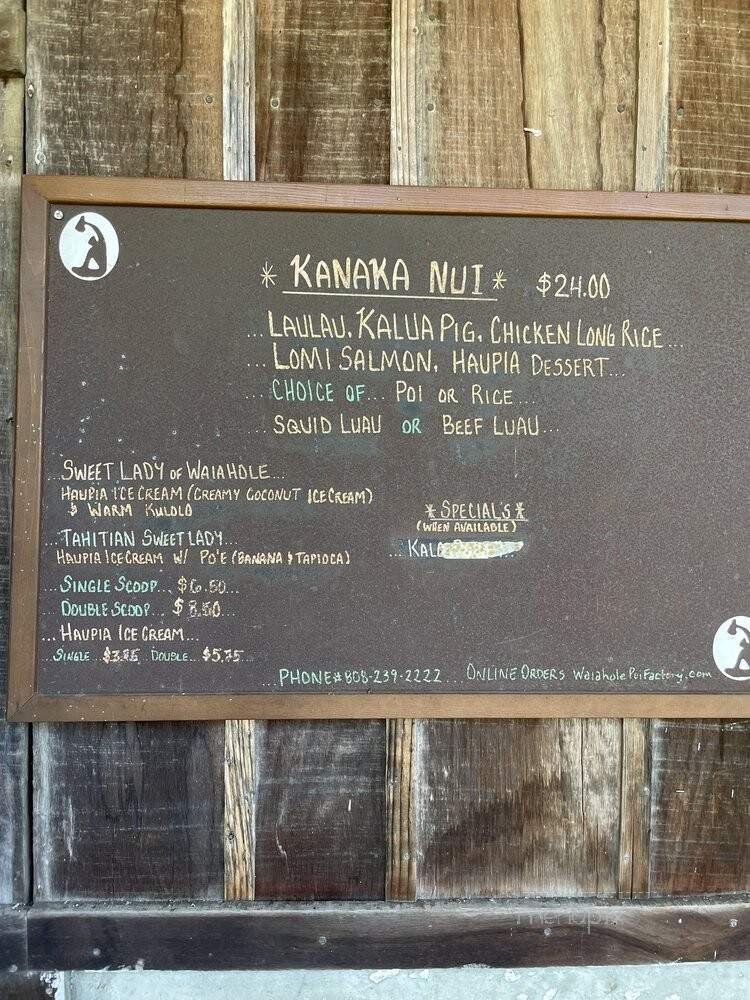 * KANAKA NUI * $24.00
...LAULAU, KALUA PIG, CHICKEN LONG RICE...
...LOMI SALMON, HAUPIA DESSERT...
...CHOICE OF... POI OR RICE...
...SQUID LUAU OR BEEF LUAU...
...SWEET LADY OF WAIAHOLE...
HAUPIA ICE CREAM (CREAMY COCONUT ICE CREAM)
& WARM KULOLO
...TAHITIAN SWEET LADY...
HAUPIA ICE CREAM W/ PO'E (BANANA & TAPIOCA)
...SINGLE SCOOP... $6.50...
...DOUBLE SCOOP... $8.50...
...HAUPIA ICE CREAM...
...SINGLE... DOUBLE... $5.75...
* SPECIAL'S *
(WHEN AVAILABLE)
...PHONE# 808-239-2222... ONLINE ORDERS WaiaholePoiFactory.com